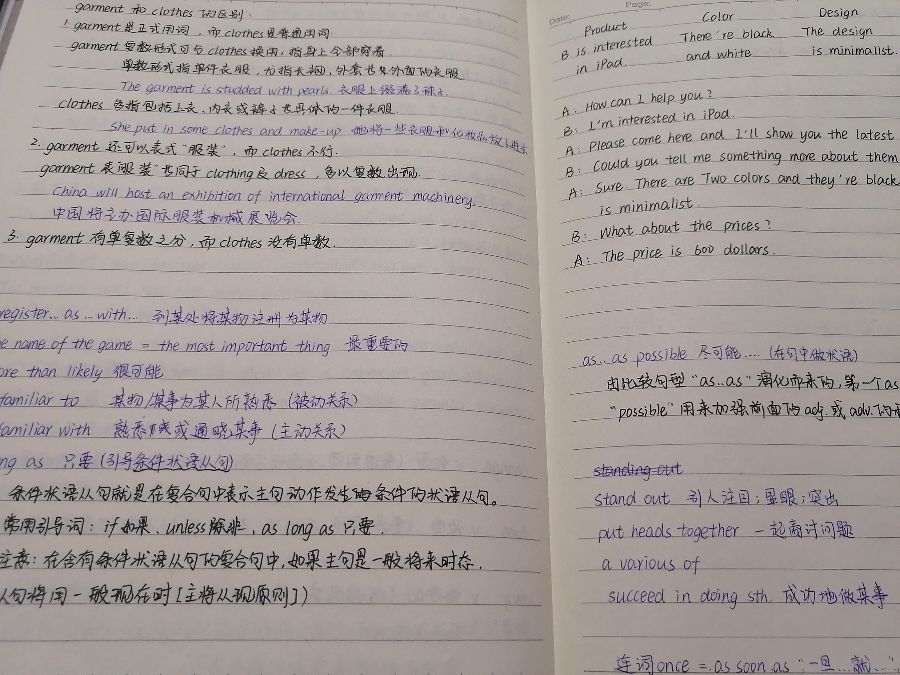 garment 和 clothes 的区别:
1. garment 是正式用词，而 clothes 是普通用词
garment 复数形式可与 clothes 换用，指身上全部穿着.
单数形式指单件衣服，尤指长袍、外套也木外面的衣服
The garment is studded with pearls. 衣服上缀满了珠子.
clothes 多指包括上衣、内衣或裤子也具体的一件衣服.
She put in some clothes and make-up 她将一些衣服和化妆品
2. garment 还可以表式“服装”，而 clothes 不行.
garment 表“服装”也同于 clothing 及 dress，多以复数出现.
China will host an exhibition of international garment machinery.
中国将主办国际服装机械展览会.
3. garment 有单复数之分，而 clothes 没有单数.
register... as ... with... 到某处将某物注册为某物
e name of the game = the most important thing 最重要的
ore than likely 很可能
familiar to 某物/某事为某人所熟悉（被动关系）
familiar with 熟悉或通晓某事（主动关系）
ng as 只要（引导条件状语从句）
条件状语从句就是在复合句中表示主句动作发生的条件的状语从句。
常用引导词：if 如果、unless 除非、as long as 只要.
注意：在含有条件状语从句的复合句中，如果主句是一般将来时态，
从句将用一般现在时［主将从现原则］）
Date:
Page:
Product Color Design
B is interested There're black The design
in iPad. and white. is minimalist.
A: How can I help you?
B: I'm interested in iPad.
A: Please come here and I'll show you the latest
B: Could you tell me something more about them
A: Sure. There are Two colors and they're black
is minimalist.
B: What about the prices?
A: The price is 600 dollars.
as...as possible 尽可能....（在句中做状语）
由比较句型“as..as”演化而来的，第一个as
“possible”用来加强前面的adj. 或 adv. 的
standing out
stand out 引人注目；显眼；突出
put heads together 一起商讨问题
a various of
succeed in doing sth. 成功地做某事
连词once = as soon as “一旦...就...”